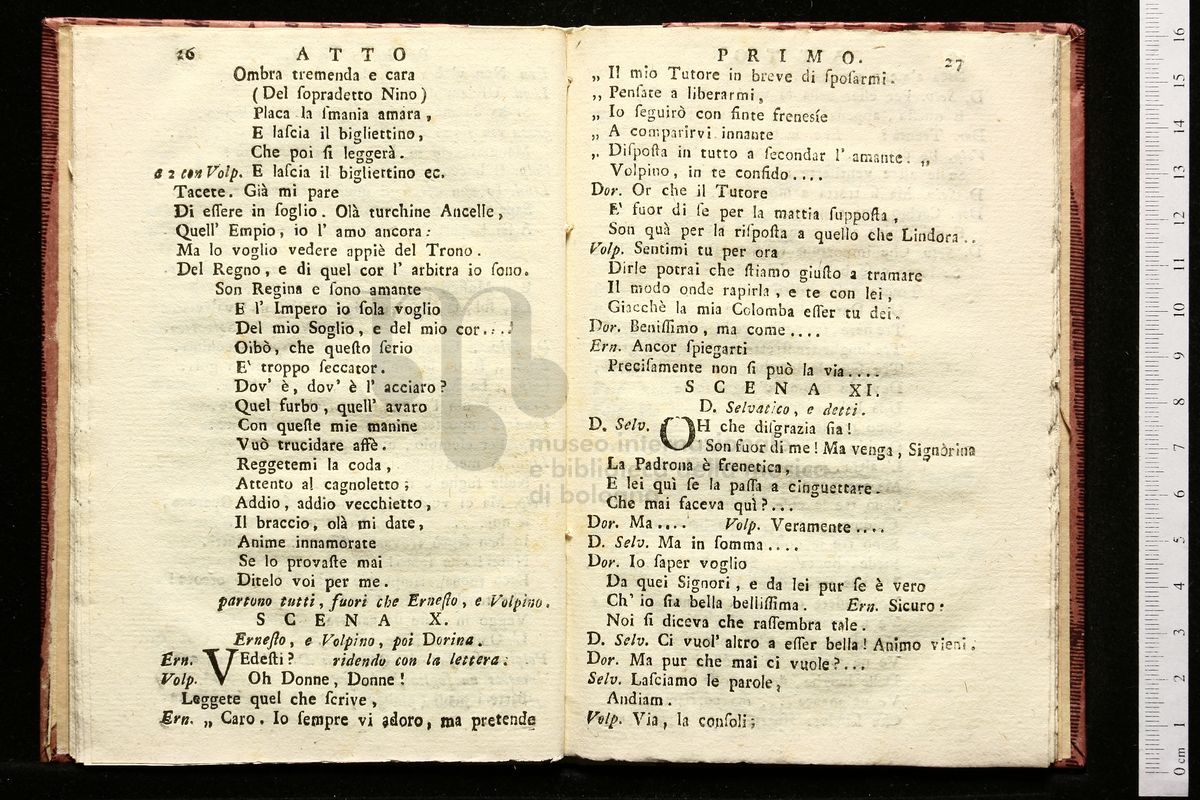 26 ATTO
Ombra tremenda e cara
( Del ſopradetto Nino )
Placa la ſmania amara ,
E laſcia il bigliettino ,
Che poi ſi leggerà .
a 2 con Volp. E laſcia il bigliettino ec.
Tacete . Già mi pare
Di eſſere in ſoglio . Olà turchine Ancelle ,
Quell' Empio , io l' amo ancora :
Ma lo voglio vedere appiè del Trono .
Del Regno , e di quel cor l' arbitra io ſono .
Son Regina e ſono amante
E l' Impero io ſola voglio
Del mio Soglio , e del mio cor . . . !
Oibò , che queſto ſerio
E' troppo ſeccator .
Dov' è , dov' è l' acciaro ?
Quel furbo , quell' avaro
Con queſte mie manine
Vuò trucidare affè .
Reggetemi la coda ,
Attento al cagnoletto ;
Addio , addio vecchietto ,
Il braccio , olà mi date ,
Anime innamorate
Se lo provaſte mai
Ditelo voi per me .
partono tutti , fuori che Erneſto , e Volpino .
SCENA X.
Erneſto , e Volpino , poi Dorina .
Ern. VEdeſti ? ridendo con la lettera .
Volp. Oh Donne , Donne !
Leggete quel che ſcrive ,
Ern. „ Caro . Io ſempre vi adoro , ma pretende
PRIMO. 27
„ Il mio Tutore in breve di ſpoſarmi .
„ Penſate a liberarmi ,
„ Io ſeguirò con finte freneſíe
„ A comparirvi innante
„ Diſpoſta in tutto a ſecondar l' amante . „
Volpino , in te confido . . . .
Dor. Or che il Tutore
E' fuor di ſe per la mattia ſuppoſta ,
Son quà per la riſpoſta a quello che Lindora . .
Volp. Sentimi tu per ora
Dirle potrai che ſtiamo giuſto a tramare
Il modo onde rapirla , e te con lei ,
Giacchè la mia Colomba eſſer tu dei .
Dor. Beniſſimo , ma come . . . .
Ern. Ancor ſpiegarti
Preciſamente non ſi può la via . . . .
SCENA XI.
D. Selvatico , e detti .
D. Selv. OH che diſgrazia ſia !
Son fuor di me ! Ma venga , Signòrina
La Padrona è frenetica ,
E lei quì ſe la paſſa a cinguettare .
Che mai faceva quì ? . . .
Dor. Ma . . . . Volp. Veramente . . . .
D. Selv. Ma in ſomma . . . .
Dor. Io ſaper voglio
Da quei Signori , e da lei pur ſe è vero
Ch' io ſia bella belliſſima . Ern. Sicuro :
Noi ſi diceva che raſſembra tale .
D. Selv. Ci vuol' altro a eſſer bella ! Animo vieni .
Dor. Ma pur che mai ci vuole ? . . .
Selv. Laſciamo le parole ,
Andiam .
Volp. Via , la conſoli ;